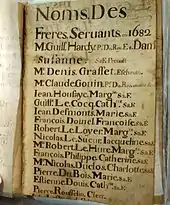 Noms Des
Freres Servants 1682
M. Guill. Hardy P. D. R. E. Dam
Susanne
M. Denis Grasset. Eschevin
M. Claude Gonin. P. D.
Jean Honfaye, Marg. S. & F.
Guill. Le Cocq. Cath. S. & F.
Jean Desmonts, Marie, S. & F.
François Dourel, Françoise, S. & F.
Robert Le Loyer, Marg. S. & F.
Nicolas Le Sueur, Jacqueline, S. & F.
M. Robert Le Hure, Marg. S. & F.
François Philippe, Catherine
M. Nicolas Duclos, Charlotte, S. & F.
Pierre Du Bois, Marie, S. & F.
Estienne Dous, Cath. S. & F.
Pierre Clerc